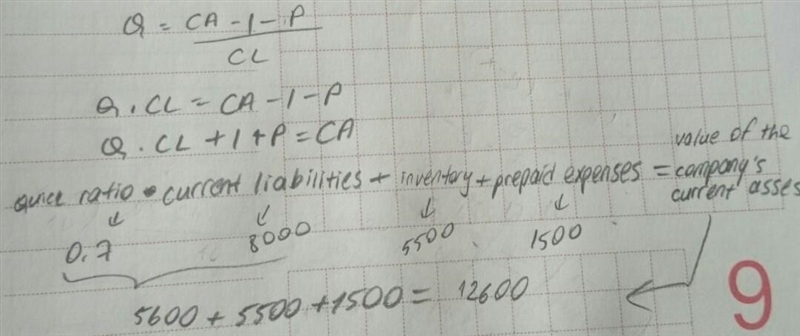 Q = CA - I - P
CL
Q . CL = CA - I - P
Q . CL + I + P = CA
quick ratio • current liabilities + inventory + prepaid expenses = value of the company's current asses
0.7 8000 5500 1500
5600 + 5500 + 1500 = 12600
9